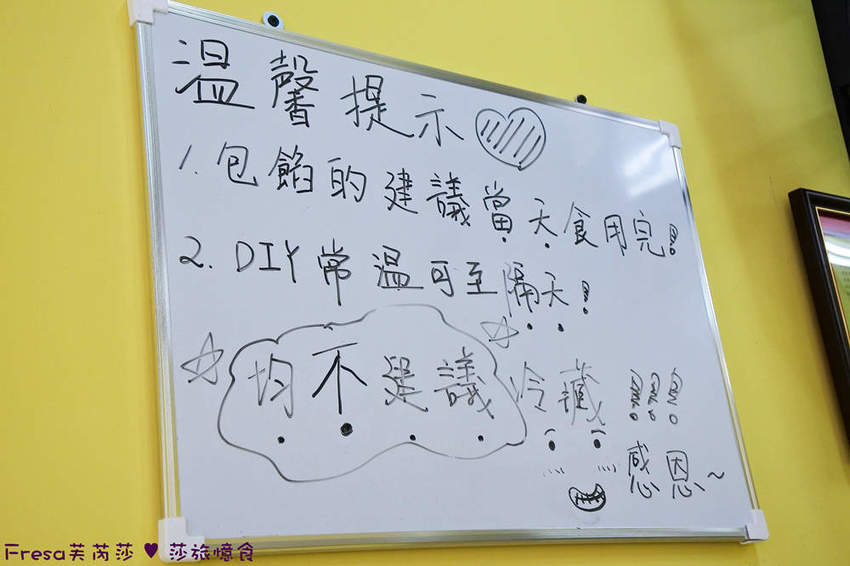 溫馨提示
1. 包餡的建議當天食用完!
2. DIY常溫可至隔天!
☆均不建議冷藏!!!
感恩~
Fresa芙芮莎 ♥ 莎旅憶食